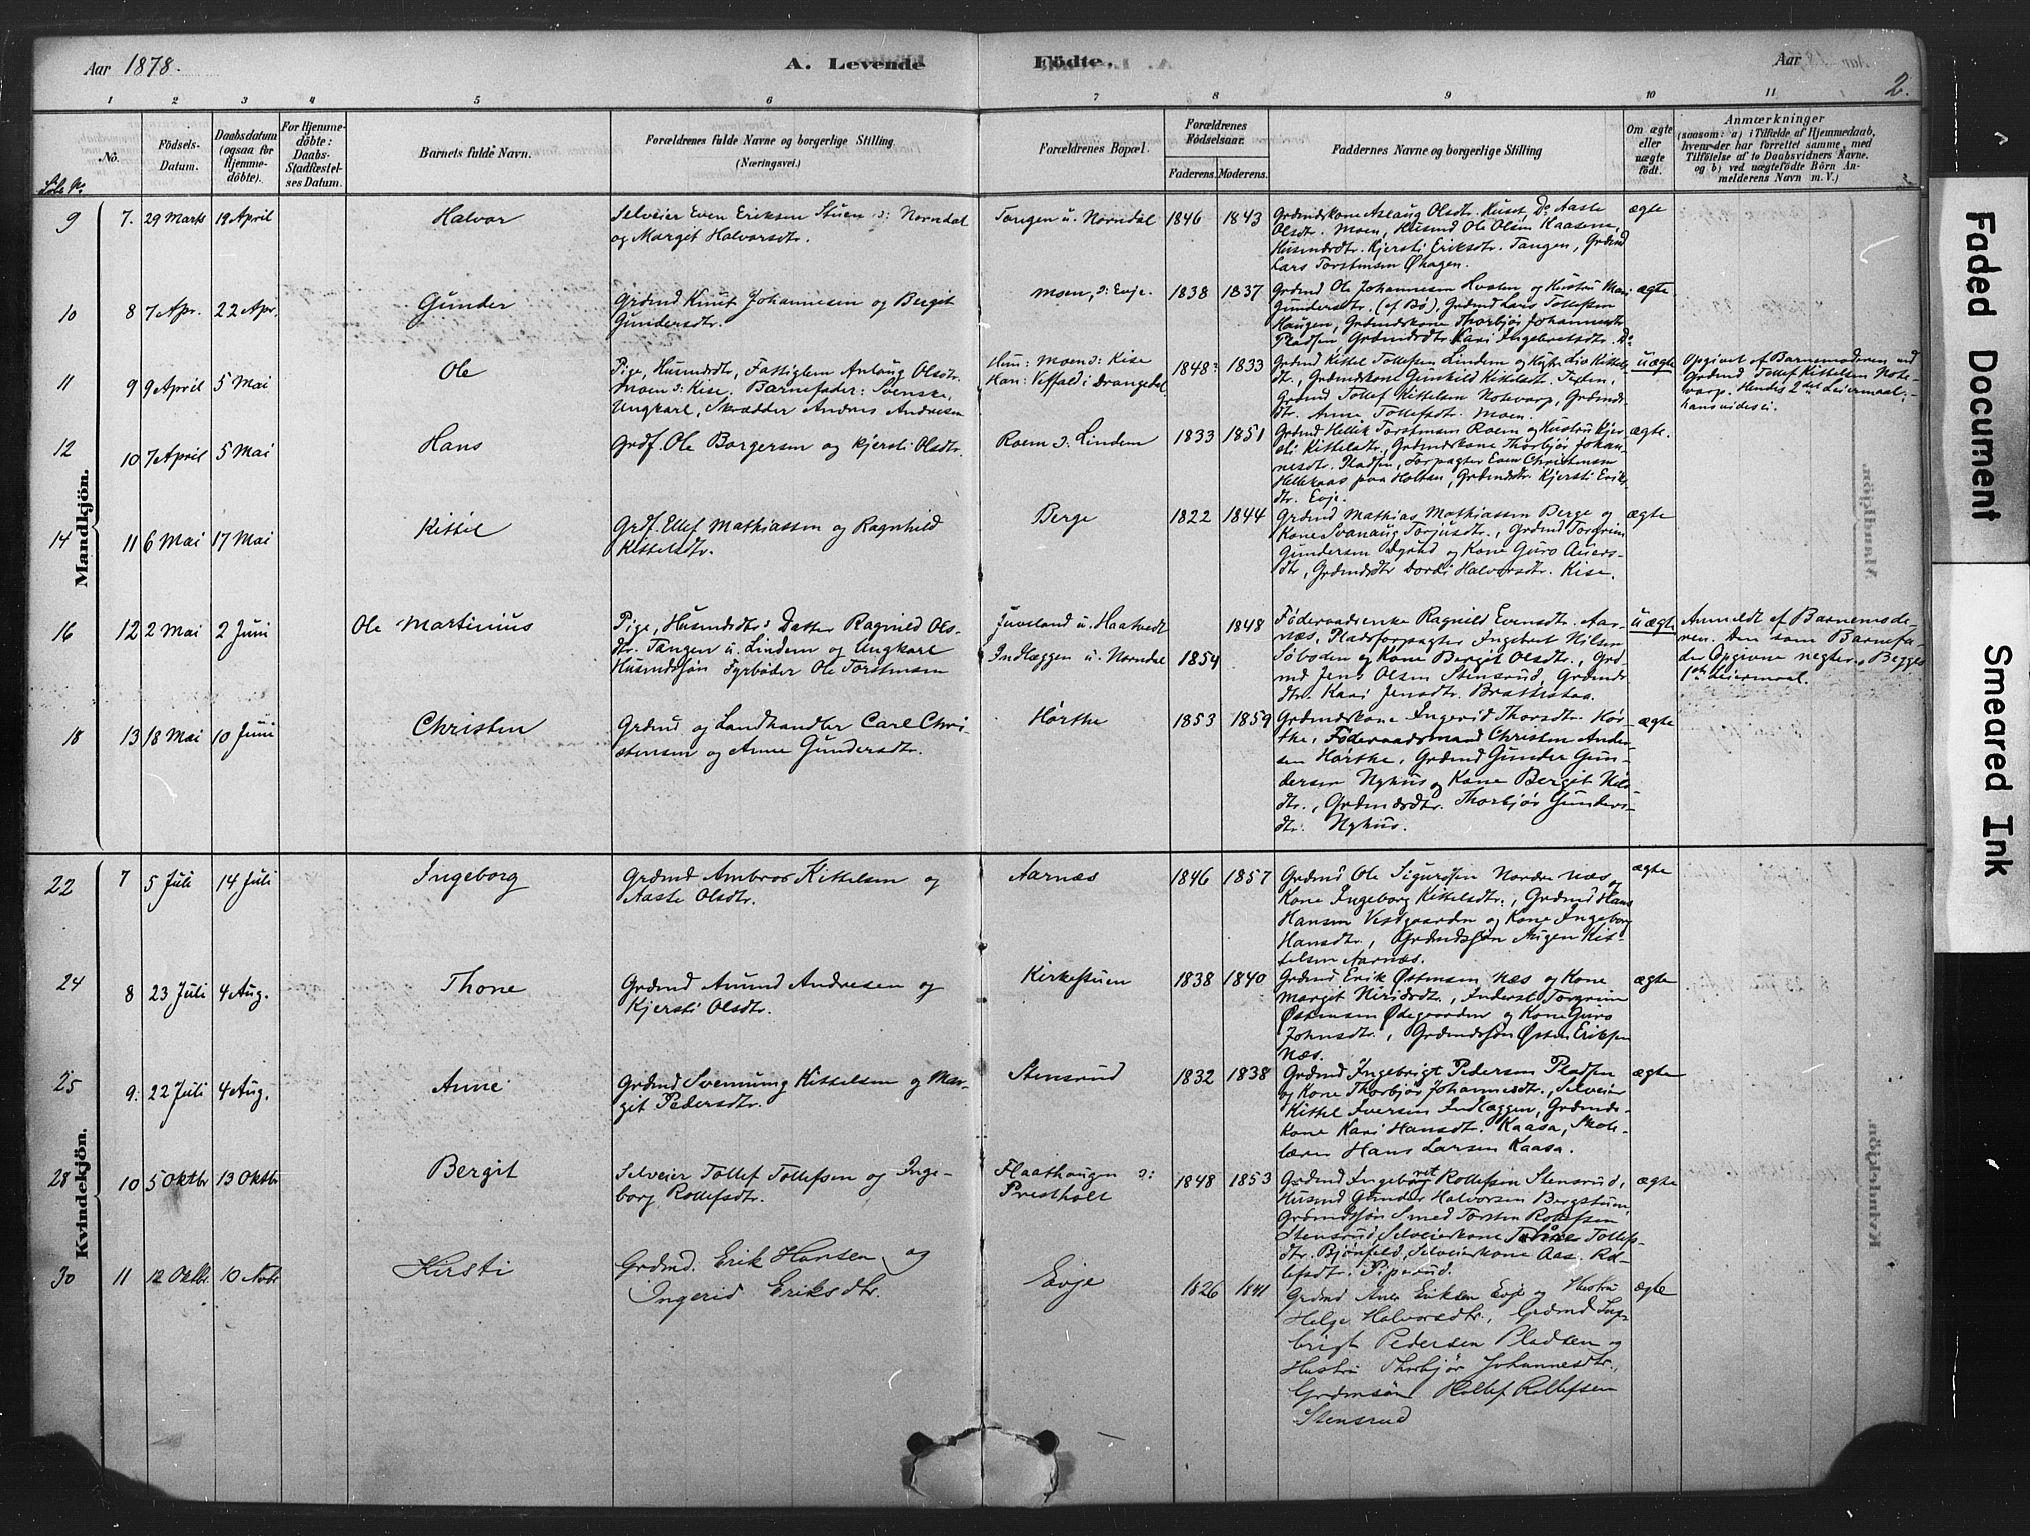 Aar 1878.
A. Levende Födte.
Aar
2.
1 2 3 4 5 6 7 8 9 10 11
No.
Födsels-
Datum.
Daabsdatum
(ogsaa for
Hjemme-
döbte).
For Hjemme-
döbte:
Daabs-
Stadfæstel-
ses Datum.
Barnets fulde Navn.
Forældrenes fulde Navne og borgerlige Stilling
(Næringsvei.)
Forældrenes Bopæl.
Forældrenes
Födselsaar.
Faderens. Moderens.
Faddernes Navne og borgerlige Stilling
Om ægte
eller
uægte
födt.
Anmærkninger
(saasom: a) i Tilfælde af Hjemmedaab,
hvem der har forrettet samme, med
Tilföielse af to Daabsvidners Navne.
og b) ved uægtefödte Börn An-
melderens Navn m. V.)
Mandkjön.
9 7. 29 Marts 19 April
Halvor
Selveier Even Eriksen Stuen i: Norndal
og Margit Halvorsdtr.
Tangen u. Norndal 1846 1843
Grdmdskone Aslaug Olsdtr. Kuset, Do Aaste
Olsdtr. Moen, Husmd Ole Olsen Kaasene,
Husmdsdtr. Kjersti Eriksdtr. Tangen, Grdmd
Lars Torstensen Øhagen.
ægte
10 8 7 Apr. 22 Apr.
Gunder
Grdmd Knut Johannesen og Berget
Gundersdtr.
Moen, i: Evje. 1838 1837
Grdmd Ole Johannesen Hvalen og Hustru Mari
Gundersdtr. (af Bø), Grdmd Lars Tollefsen
Haugen, Grdmdskone Thorbjør Johannesdtr
Pladsen Grdmdsdtr. Kari Ingebretsdtr. Do
ægte
11 9 9 April 5 Mai
Ole
Pige, Husmdsdtr, Fattiglem Anlaug Olsdtr.
Moen i: Kise. Barnefader: Svenske,
Ungkarl, Skrædder Andres Andresen
Hun: Moen i: Kise
Han: Veffald i Drangedal
1848: 1833
Grdmd Kittel Tollefsen Lindem og Live Kittels-
dtr., Grdmdskone Gunhild Kittelsdtr. Texlen,
Grdmd Tollef Kittelsen Notevarp, Grdmds-
dtr. Anne Tollefsdtr. Moen.
uægte
Opgivet af Barnemoderen ved
Grdmd Tollef Kittelsen Note-
varp. Hendes 2det Leiermaal:
hans vides ei.
12 10 7 April 5 Mai
Hans
Grdf. Ole Borgersen og Kjersti Olsdtr.
Roem i: Lindem 1833 1851
Grdmd Hellik Torstensen Roem og Hustru Kjer-
sti Kittelsdtr., Grdmdskone Thorbjør Johan-
nesdtr. Pladsen, Forpagter Even Christensen
Hellekaas paa Holtan, Grdmdsdtr Kjersti Eriks-
dtr. Evje.
ægte.
14 11 6 Mai 17 Mai
Kittil
Grdf. Ellef Mathiassen og Ragnhild
Kittelsdtr.
Berge 1822 1844
Grdmd Mathias Mathiassen Berge og
Kone Svanaug Torjusdtr., Grdmd Torgrim
Gundersen og Kone Guro Auers-
dtr, Grdmdsdtr Dordi Halvorsdtr. Kise.
ægte
16 12 2 Mai 2 Juni
Ole Martinius
Pige, Husmdsdtr: Datter Ragnild Ols-
dtr. Tangen u. Lindem og Ungkarl
Husmdssøn Fyrbøder Ole Torstensen
Juveland u. Haatvedt
Indlæggen u. Norndal 1854
1848
Föderaadsenke Ragnild Evensdtr. Aar-
næs, Pladsforpagter Ingebret Nilsen
Søboden og Kone Bergit Olsdtr., Grd-
md Jens Olsen Stensrud, Grdmds-
dtr. Kari Jensdtr. Brattestaa.
uægte
Anmeldt af Barnemode-
ren. Den som Barnefa-
der Opgivne negter. Begges
1ste Leiermaal.
18 13 18 Mai 10 Juni
Christen
Grdmd og Landhandler Carl Chri-
stensen og Anne Gundersdtr.
Hørthe 1853 1859
Grdmdskone Ingerid Thorsdtr. Hør-
the, Föderaadsmand Christen Ander-
sen Hørthe, Grdmd Gunder Gun-
dersen Nyhus og Kone Bergit Nils-
dtr., Grdmdsdtr. Thorbjør Gunders-
dtr. Nyhus.
ægte
Kvindekjön.
22 7 5 Juli 14 Juli
Ingeborg
Grdmd Ambros Kittelsen og
Aaste Olsdtr.
Aarnæs 1846 1857
Grdmd Ole Sigursen Nordre næs og
Kone Ingeborg Kittelsdtr., Grdmd Hans
Hansen Vestgaarden og Kone Ingeborg
Hansdtr., Grdmdssøn Augen Kit-
telsen Aarnæs.
ægte
24 8 23 Juli 4 Aug.
Thone
Grdmd Amund Andresen og
Kjersti Olsdtr.
Kirkestuen 1838 1840
Grdmd Erik Østensen Næs og Kone
Margit Niridsdtr., Inderst Torgrim
Østensen Ødegaarden og Kone Guro
Johnsdtr., Grdmdssøn Østen Eriksen
Næs.
ægte
25 9. 22 Juli 4 Aug.
Anne
Grdmd Svennung Kittelsen og Mar-
git Pedersdtr.
Stensrud 1832 1838
Grdmd Ingebrigt Pedersen Pladsen
og Kone Thorbjør Johannesdtr., Selveier
Kittel Iversen Indlæggen, Grdmds-
kone Kari Hansdtr. Kaasa, Skole-
lærer Hans Larsen Kaasa.
ægte
28 10 5 Oktbr 13 Oktbr
Bergit
Selveier Tollef Tollefsen og Inge-
borg Rollefsdtr.
Flaathaugen i:
Prestholt
1848 1853
Grdmd Ingebret Rollefsen Stensrud,
Husmd Gunder Halvorsen Bergstuen,
Grdmdssøn Smed Torsten Rollefsen
Stensrud, Selveierkone Tone Tollefs-
dtr. Bjønfeld, Selveierkone Aas. Rol-
lefsdtr. Piperud.
ægte
30 11 12 Oktbr. 10 Novbr
Kirsti
Grdmd. Erik Hansen og
Ingerid Eriksdtr.
Evje 1826 1841
Grdmd Aner Eriksen Evje og Hustru
Helge Halvorsdtr., Grdmd Inge-
brigt Pedersen Pladsen og
Hustru Thorbjør Johannesdtr.,
Grdmsøn Rollef Rollefsen
Stensrud
ægte
Faded Document
Smeared Ink